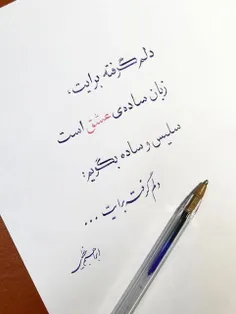 دلم گرفته برایت،
زبان ساده‌ی عشق است
سلیس و ساده بگویم:
دلم گرفت برایت ...